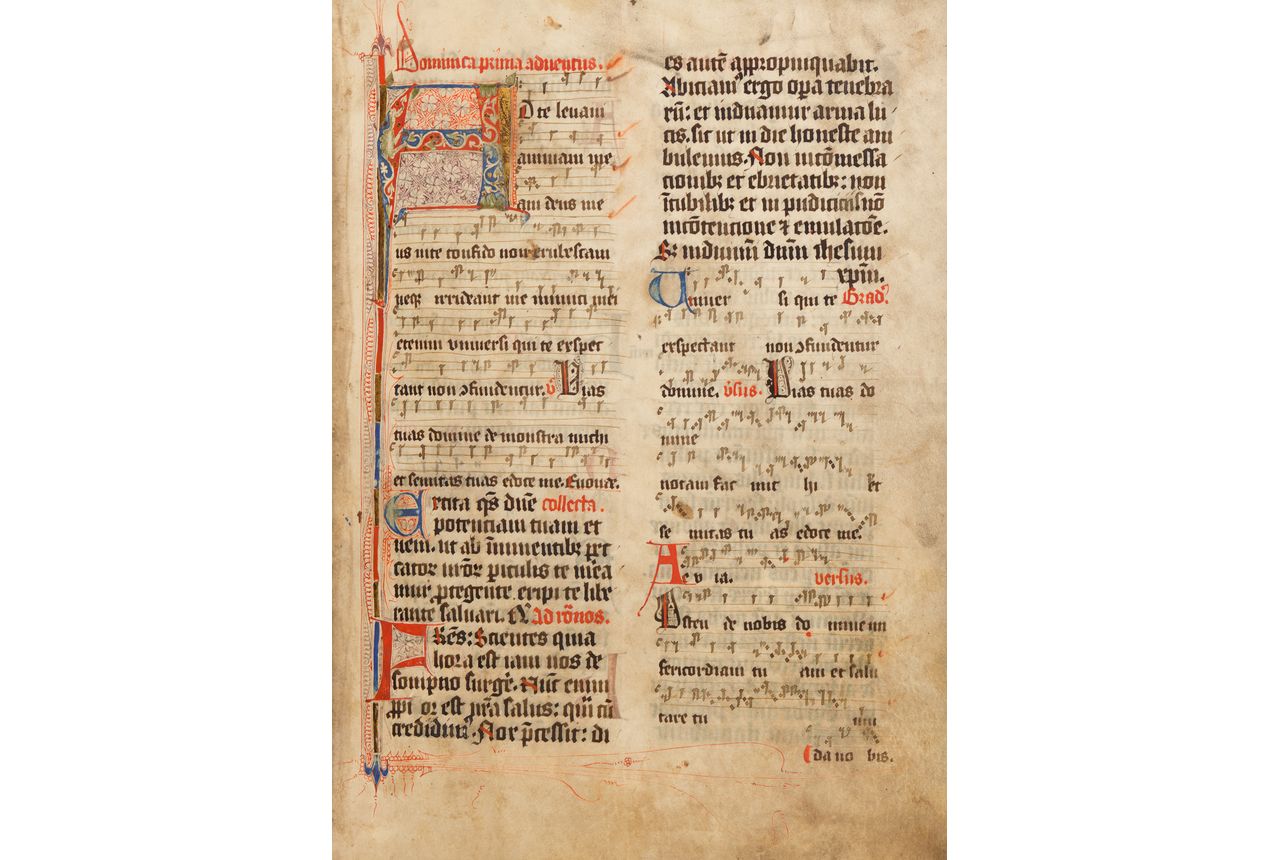 Dominica prima adventus.
AD te levavi
animam me
am deus me
us in te confido non erubescam
neqꝫ irrideant me inimici mei
etenim universi qui te exspec
tant non ↄfundentur. v̄ Vias
tuas domine demonstra michi
et semitas tuas edoce me. Euouae.
Excita q̄s dn̄e collecta.
potenciam tuam et
veni. ut ab īminentibꝫ pec
catoꝝ nr̄oꝝ piculis te mea
mur ꝓtegente. eripi te libe
rante salvari. Ad rōnos.
Fr̄es: Scientes quia
hora est iam nos de
sompno surge. Nūc enim
ꝓpior est nr̄a salus: qm̄ cū
credidim᷒. Nox p̄cessit: di
es autē appropinquabit.
Abiciam᷒ ergo opa tenebra
rū: et induamur arma lu
cis. sic ut in die honeste am
bulemus. Non in cōmessa
cionibꝫ et ebrietatibꝫ: non
ī cubilibꝫ et in pudiciciis nō
in cōtencione ⁊ emulacōe.
Sꝫ induim̄ dūm ihesum
xpm̄.
Univer si qui te Grad᷒.
exspectant non ↄfundentur
domine. v̄sus. Vias tuas do
mine
notam fac mi chi et
se mitas tu as edoce me.
Ae v ia. versus.
Osten de nobis do mine mi
sericordiam tu am et salu
tare tu um
da no bis.